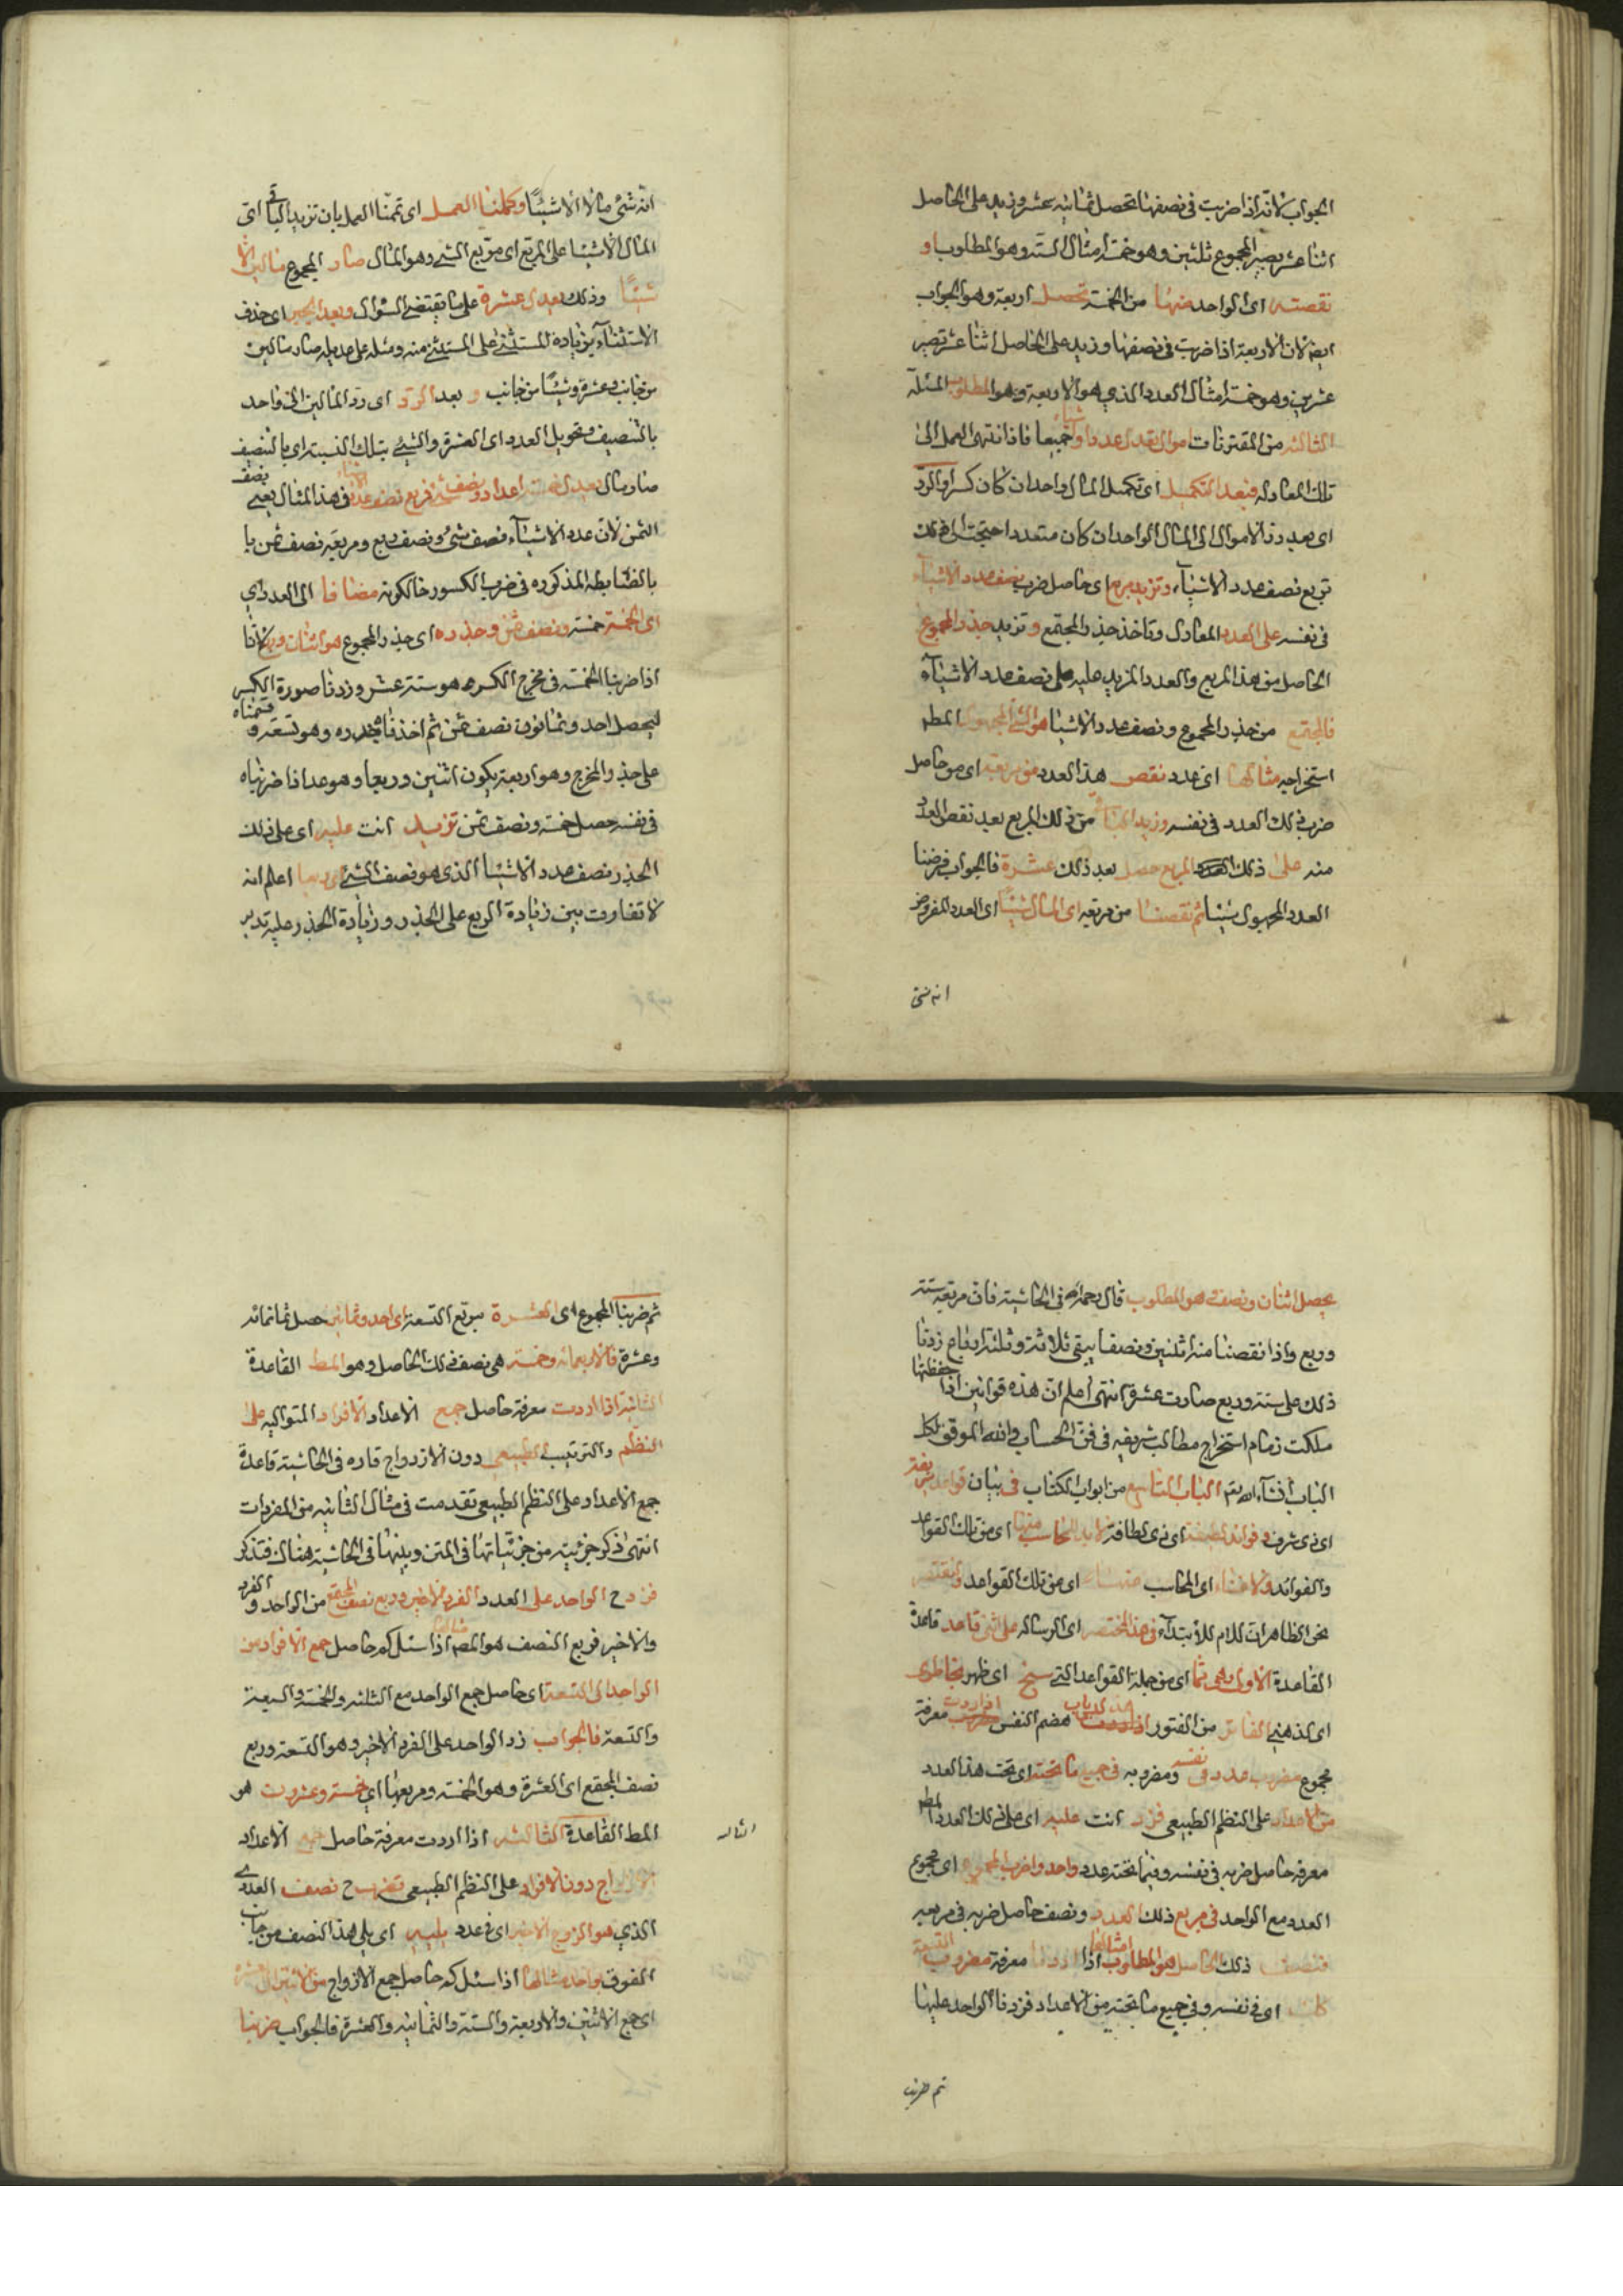 الجواب لانه اذا ضربت فى نصفها تحصل ثمانية عشر وزيد على الحاصل
اثنا عشر يصير المجموع ثلثين وهو خمسة امثال الستة وهو المطلوب او
نقصته اى الواحد منها من الخمسة تحصل اربعة وهو الجواب
ايضا لان الاربعة اذا ضربت فى نصفها وزيد على الحاصل اثنا عشر تصير
عشرين وهو خمسة امثال العدد الذى هو الاربعة وهو المطلوب المسئلة
الثالثة من المقترنات اموال تعدل عددا واشياء جميعا فاذا انتهى العمل الى
تلك المعادلة فبعد التكميل اى تكميل المال واحدا ان كان كسرا او الرد
اى بعد رد الاموال الى المال الواحد ان كان متعددا احتيجت الى ذلك
تربع نصف عدد الاشياء وتزيد مربع اى حاصل ضرب نصف عدد الاشياء
فى نفسه على العدد المعادل وتاخذ جذر المجتمع و تزيد جذر المجموع
الحاصل من هذا المربع والعدد المزيد عليه على نصف عدد الاشياء
فالمجتمع من جذر المجموع ونصف عدد الاشياء هو الشئ المجهول المط
استخراجه مثالها اى عدد نقص هذا العدد من مربعه اى من حاصل
ضرب ذلك العدد فى نفسه وزيد الباقى من ذلك المربع بعد نقص العدد
منه على ذلك المربع حصل بعد ذلك عشرة فالجواب فرضنا
العدد المجهول شيئا ثم نقصنا من مربعه اى المال شيئا اى العدد المفروض
انه شئ
انه شئ مالا الا شيئا وكملنا العمل اى تممنا العمل بان تزيد الباقى اى
المال الا شيئا على المربع اى مربع الشئ وهو المال صار المجموع مالين الا
شيئا وذلك يعدل عشرة على ما يقتضى السؤال وبعد الجبر اى حذف
الاستثناء بزيادة المستثنى على المستثنى منه ومثله على عديله صار مالين
من جانب وعشرة وشيئا من جانب و بعد الرد اى رد المالين الى واحد
بالتنصيف وتحويل العدد اى العشرة والشئ بتلك النسبة اى بالتنصيف
صار مال يعدل خمسة اعداد ونصف شئ فربع نصف عدد الاشياء فى هذا المثال يعنى نصف
الثمن لان عدد الاشياء نصف شئ ونصفه ربع ومربعه نصف ثمن با
بالضابطة المذكورة فى ضرب الكسور حالكونه مضافا الى العدد اى
اى الخمسة خمسة ونصف ثمن وجذره اى جذر المجموع هو اثنان وربع لانا
اذا ضربنا الخمسة فى مخرج الكسر هو ستة عشر وزدنا صورة الكسر
ليحصل احد وثمانون نصف ثمن ثم اخذنا جذره وهو تسعة و قسمناه
على جذر المخرج وهو اربعة يكون اثنين وربعا وهو عدد اذا ضربناه
فى نفسه حصل خمسة ونصف ثمن تزيد انت عليه اى على ذلك
الجذر نصف عدد الاشياء الذى هو نصف الشئ اى ربعا اعلم انه
لا تفاوت بين زيادة الربع على الجذر وزيادة الجذر عليه تدبر
يحصل اثنان ونصف هو المطلوب قال رحمه الله فى الحاشية فان مربعه ستة
وربع واذا نقصنا منه اثنين ونصفا يبقى ثلاثة وثلثة ارباع زدنا
ذلك على ستة وربع صارت عشرة انتهى اعلم ان هذه قوانين اذا حفظتها
ملكت زمام استخراج مطالب شريفة فى فن الحساب والله الموفق لكل
الباب انشاء الله تم الباب التاسع من ابواب الكتاب فى بيان قواعد شريفة
اى ذى شرف وفوائد لطيفة اى ذى لطافة لا بد للحاسب منها اى من تلك القواعد
والفوائد ولا غناء اى للحاسب عنها اى من تلك القواعد ولنقتصر
نحن الظاهر ان اللام للابتداء فى هذا المختصر اى الرسالة على اثنى قاعدة قاعدة
القاعدة الاولى وهى مما اى من جملة القواعد التى سنح اى ظهر بخاطرى
اى لذهنى الفاتر من الفتور هضم النفس اذا اردت معرفة
مجموع مضروب عدد فى نفسه ومضروبه فى جميع ما تحته اى تحت هذا العدد
من الاعداد على النظم الطبيعى فزد انت عليه اى على ذلك العدد المط
معرفة حاصل ضربه فى نفسه وفيما تحته عدد واحد واضرب المجموع اى مجموع
العدد مع الواحد فى مربع ذلك العدد ونصف حاصل ضربه فى مربعه
فنصف ذلك الحاصل هو المطلوب مثالها اذا اردنا معرفة مضروب التسعة
كك اى فى نفسه وفى جميع ما تحته من الاعداد فزدنا الواحد عليها
ثم ضربنا
ثم ضربنا المجموع اى العشرة بمربع التسعة اى احد وثمانين حصل ثمانمائه
وعشرة فالاربعمائه وخمسة هى نصف ذلك الحاصل وهو المط القاعدة
الثانية اذا اردت معرفة حاصل جمع الاعداد الافراد المتوالية على
النظم والترتيب الطبيعى دون الازواج قاده فى الحاشية قاعدة
جمع الاعداد على النظم الطبيعى تقدمت فى مثال الثانية من المفردات
انتهى ذكر جزئية من جزئياتها فى المتن وبينها فى الحاشية هناك فتذكر
فزد ح الواحد على العدد الفرد الاخير وربع نصف المجتمع من الواحد و الفرد
والاخير فربع النصف هو المط مثالها اذا سئل كم حاصل جمع الافراد من
الواحد الى التسعة اى حاصل جمع الواحد مع الثلثة والخمسة والسبعة
والتسعة فالجواب زد الواحد على الفرد الاخير وهو التسعة وربع
نصف المجتمع اى العشرة وهو الخمسة ومربعها اى خمسة وعشرون هو
المط القاعدة الثالثة اذا اردت معرفة حاصل جمع الاعداد
الازواج دون الافراد على النظم الطبيعى تضرب ح نصف العدد
الذى هو الزوج الاخير اى فى عدد يليه اى يلى هذا النصف من جانب
الفوق بواحد مثالها اذا سئل كم حاصل جمع الازواج من الاثنين الى العشرة
اى جمع الاثنين والاربعة والستة والثمانية والعشرة فالجواب ضربنا